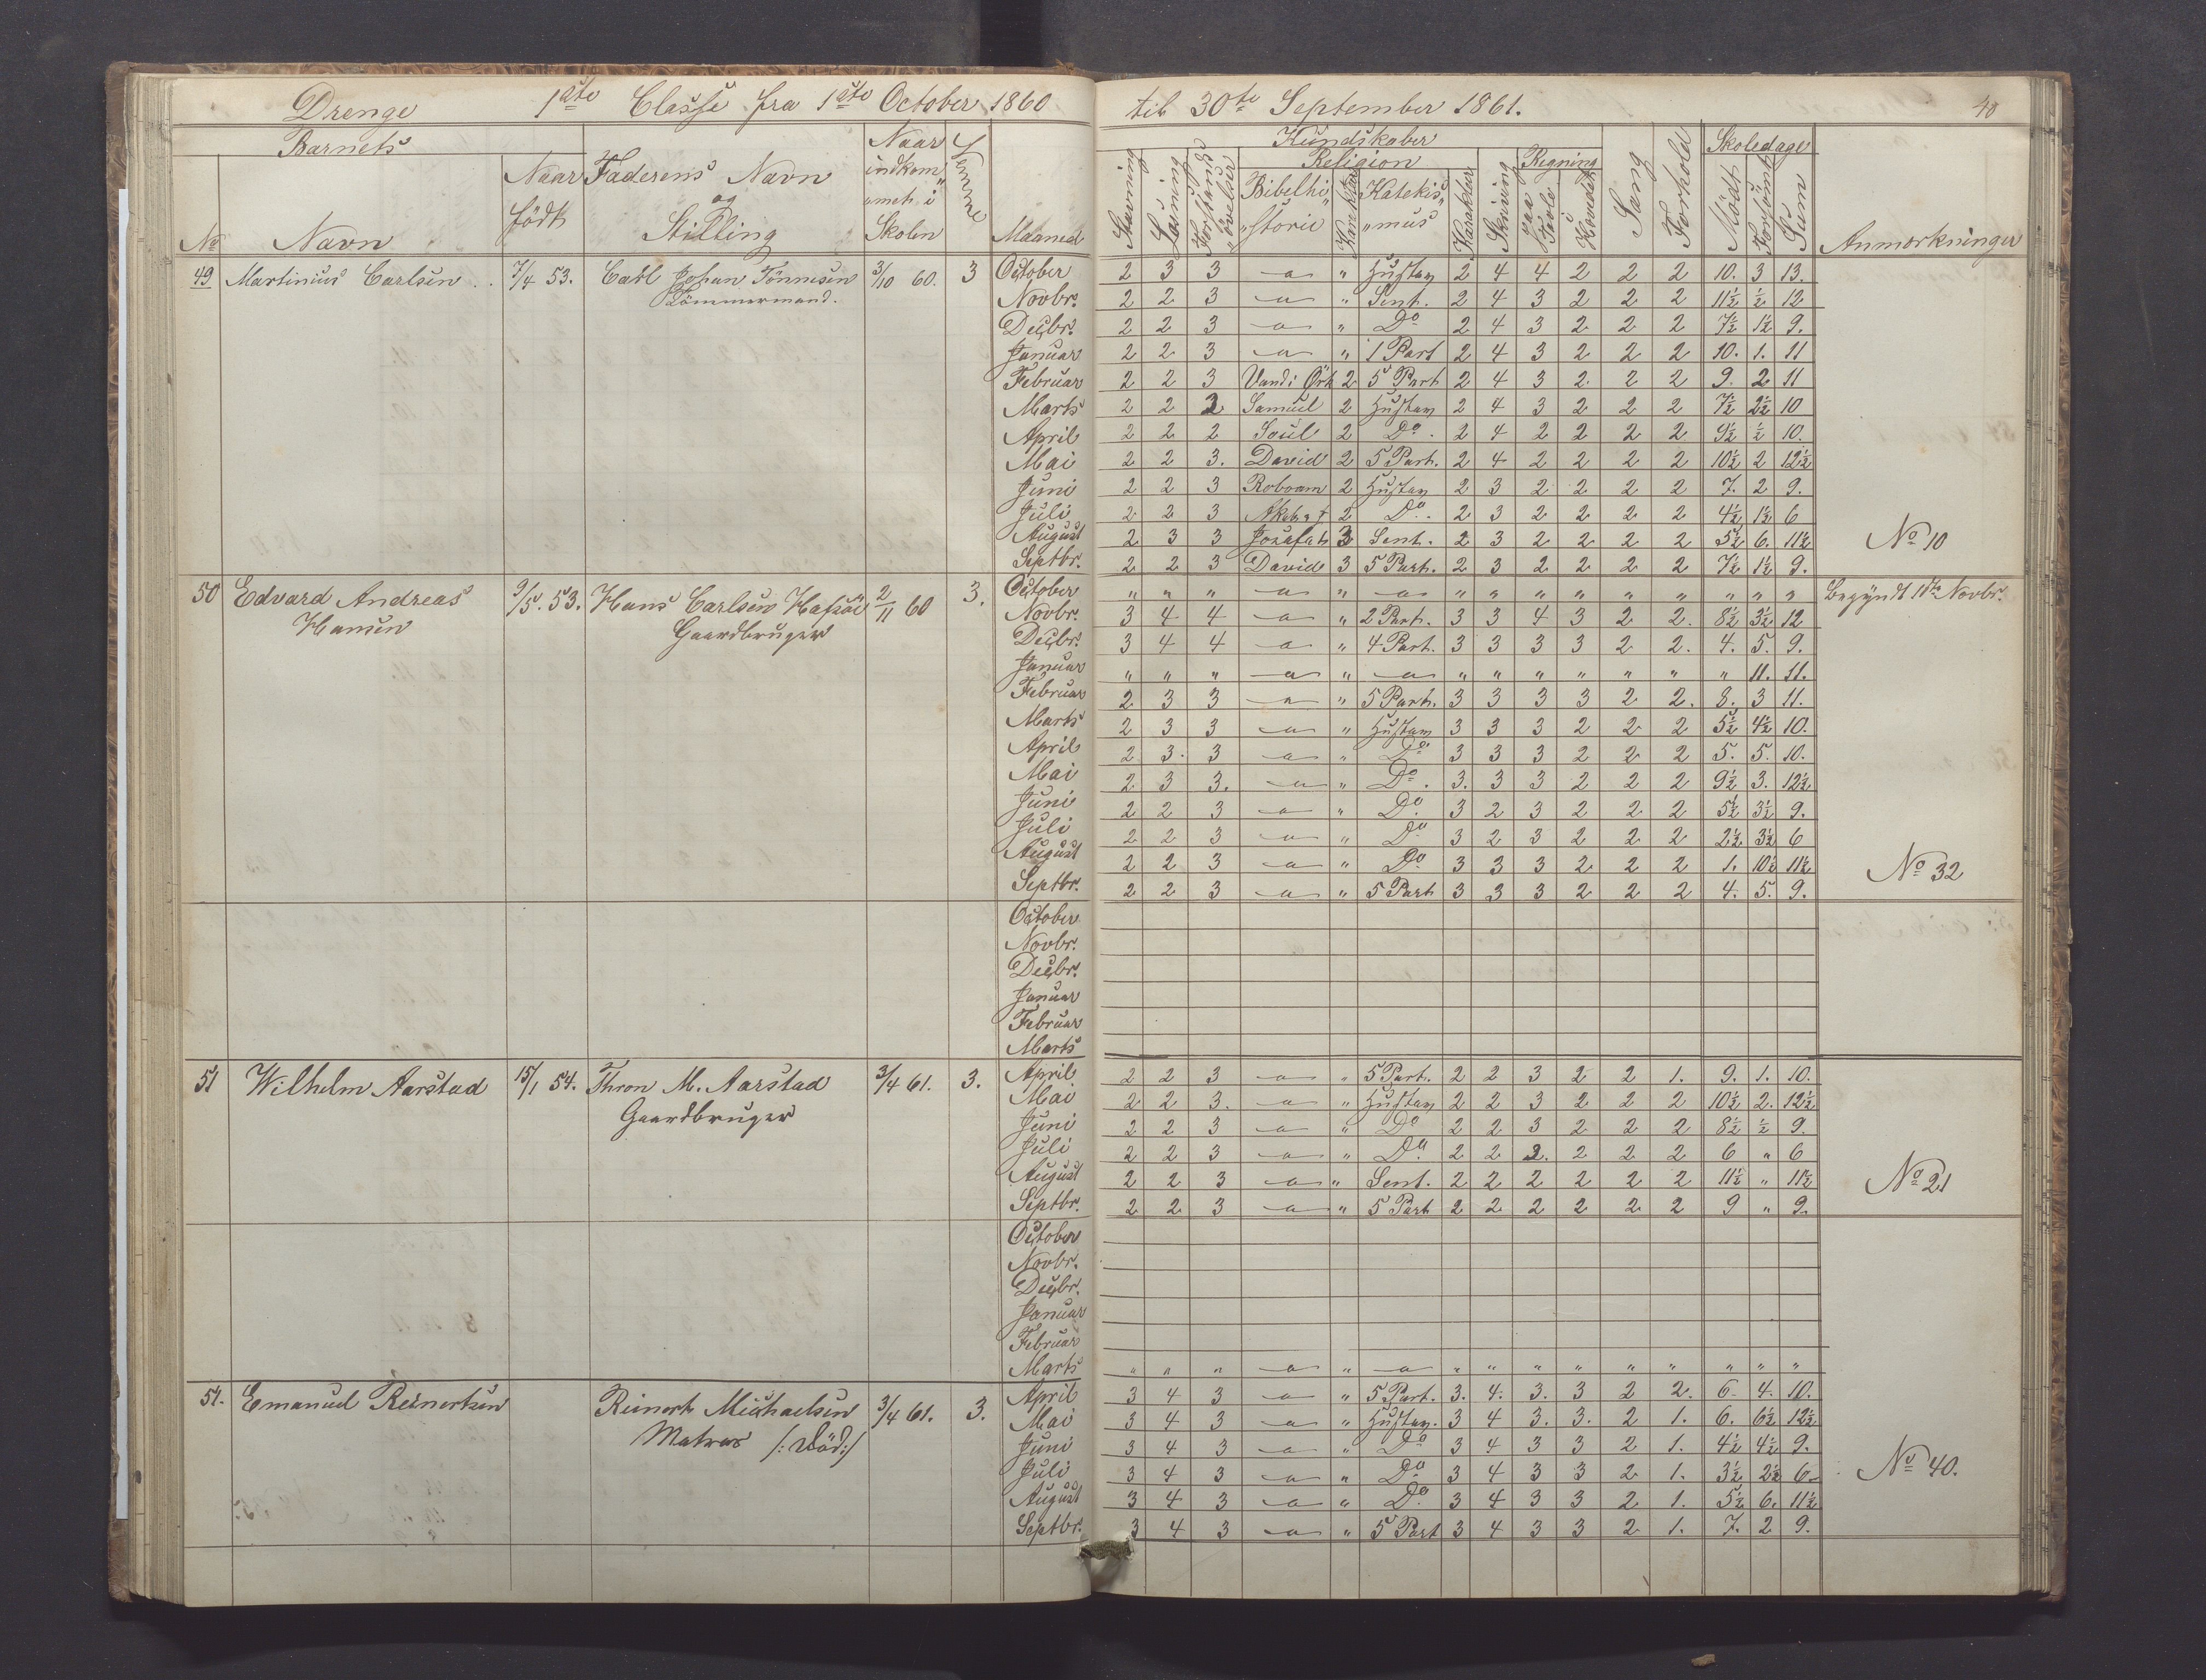 Drenge 1ste Classe fra 1ste October 1860 til 30te September 1861. 40
Barnets
No Navn Naar födt Faderens Navn og Stilling Naar indkommet i Skolen Evne Maaned
Kundskaber
Religion Regning Skoledage
Stavning Læsning Forstands övelser Bibelhistorie Karakter Katekismus Karakter Skrivning paa Tavle Hovedet Sang Forhold Mödt Forsömt Sum Anmærkninger
49 Martinius Carlsen 7/4 53. Carl Johan Tönnesen Tömmermand. 3/10 60. 3
October 2 3 3 " " Hustav 2 4 4 2 2 2 10. 3 13.
Novbr. 2 2 3 " " Sent. 2 4 3 2 2 2 11½ ½ 12
Decbr. 2 2 3 " " Do 2 4 3 2 2 2 7½ 1½ 9.
Januar 2 2 3 " " 1 Part 2 4 3 2 2 2 10. 1. 11
Februar 2 2 3 Vand i Örk 2 5 Part 2 4 3 2 2 2 9. 2 11
Marts 2 2 2 Samuel 2 Hustav 2 4 3 2 2 2 7½ 2½ 10
April 2 2 2 Saul 2 Do. 2 4 2 2 2 2 9½ ½ 10.
Mai 2 2 3. David 2 5 Part. 2 4 2 2 2 2 10½ 2 12½
Juni 2 2 3 Roboam 2 Hustav 2 3 2 2 2 2 7. 2 9.
Juli 2 2 3 2 Do. 2 3 2 2 2 2 4½ 1½ 6
August 2 3 3 Josafat 3 Sent. 2 3 2 2 2 2 5½ 6. 11½ No 10
Septbr. 2 2 3 David 3 5 Part. 2 3 2 2 2 2 7½ 1½ 9.
50 Edvard Andreas Hansen 9/5. 53. Hans Carlsen Hafsöe Gaardbruger 2/11 60 3.
October " " " " " " " " " " " " " " " Begyndt 1ste Novbr.
Novbr. 3 4 4 " " 2 Part. 3 3 4 3 2 2. 8½ 3½ 12
Decbr. 3 4 4 " " 4 Part. 3 3 3 3 2 2. 4. 5. 9.
Januar " " " " " " " " " " " " " 11. 11.
Februar 2 3 3 " " 5 Part. 3 3 3 3 2 2. 8. 3 11.
Marts 2 3 3 " " Hustav 3 3 3 2 2 2 5½ 4½ 10.
April 2 3. 3 " " Do 3 3 3 2 2 2 5. 5. 10.
Mai 2 3 3. " " Do. 3. 3 3 2 2 2 9½ 3. 12½
Juni 2 2 3 " " Do. 3 2 3 2 2 2 5½ 3½ 9.
Juli 2 2 3 " " Do 3 2 3 2 2 2 2½ 3½ 6
August 2 2 3 " " Do 3 3 3 2 2 2 1. 10½ 11½ No 32
Septbr. 2 2 3 " " 5 Part 3 3 3 2 2 2 4. 5. 9.
October
Novbr.
Decbr.
Januar
Februar
Marts
51 Wilhelm Aarstad 15/1 54. Thron M. Aarstad Gaardbruger 3/4 61. 3.
April 2 2 3 " " 5 Part. 2 2 3 2 2 1. 9. 1. 10.
Mai 2 2 3. " " Hustav 2 2 3 2 2 2 10½ 2. 12½
Juni 2 2 3 " " Do 2 2 3 2 2 2 8½ ½ 9.
Juli 2 2 3 " " Do. 2 2 2. 2 2 2 6 " 6
August 2 2 3 " " Sent. 2 2 2 2 2 2 11½ " 11½ No 21
Septbr. 2 2 3 " " 5 Part 2 2 2 2 2 2 9 " 9.
October
Novbr.
Decbr.
Januar
Februar
Marts " " " " " " " " " " " " " " "
54. Emanuel Reinertsen Reinert Michaelsen Matros /: Död :/ 3/4 61. 3.
April 3 4 3 " " 5 Part. 3. 4. 3. 3 2 2. 6. 4. 10.
Mai 3 4 3 " " Hustav. 3 4 3. 3. 2 1. 6. 6½ 12½
Juni 3 4 3 " " Do 3 4 3 3 2 1. 4½ 4½ 9.
Juli 3 4 3 " " Do 3 4 3 3 2 1. 3½ 2½ 6 No 40.
August 3 4 3 " " Do. 3 4 3 3 2 1. 5½ 6. 11½
Septbr. 3 4 3 " " 5 Part 3 4 3 3 2 1. 7. 2 9.